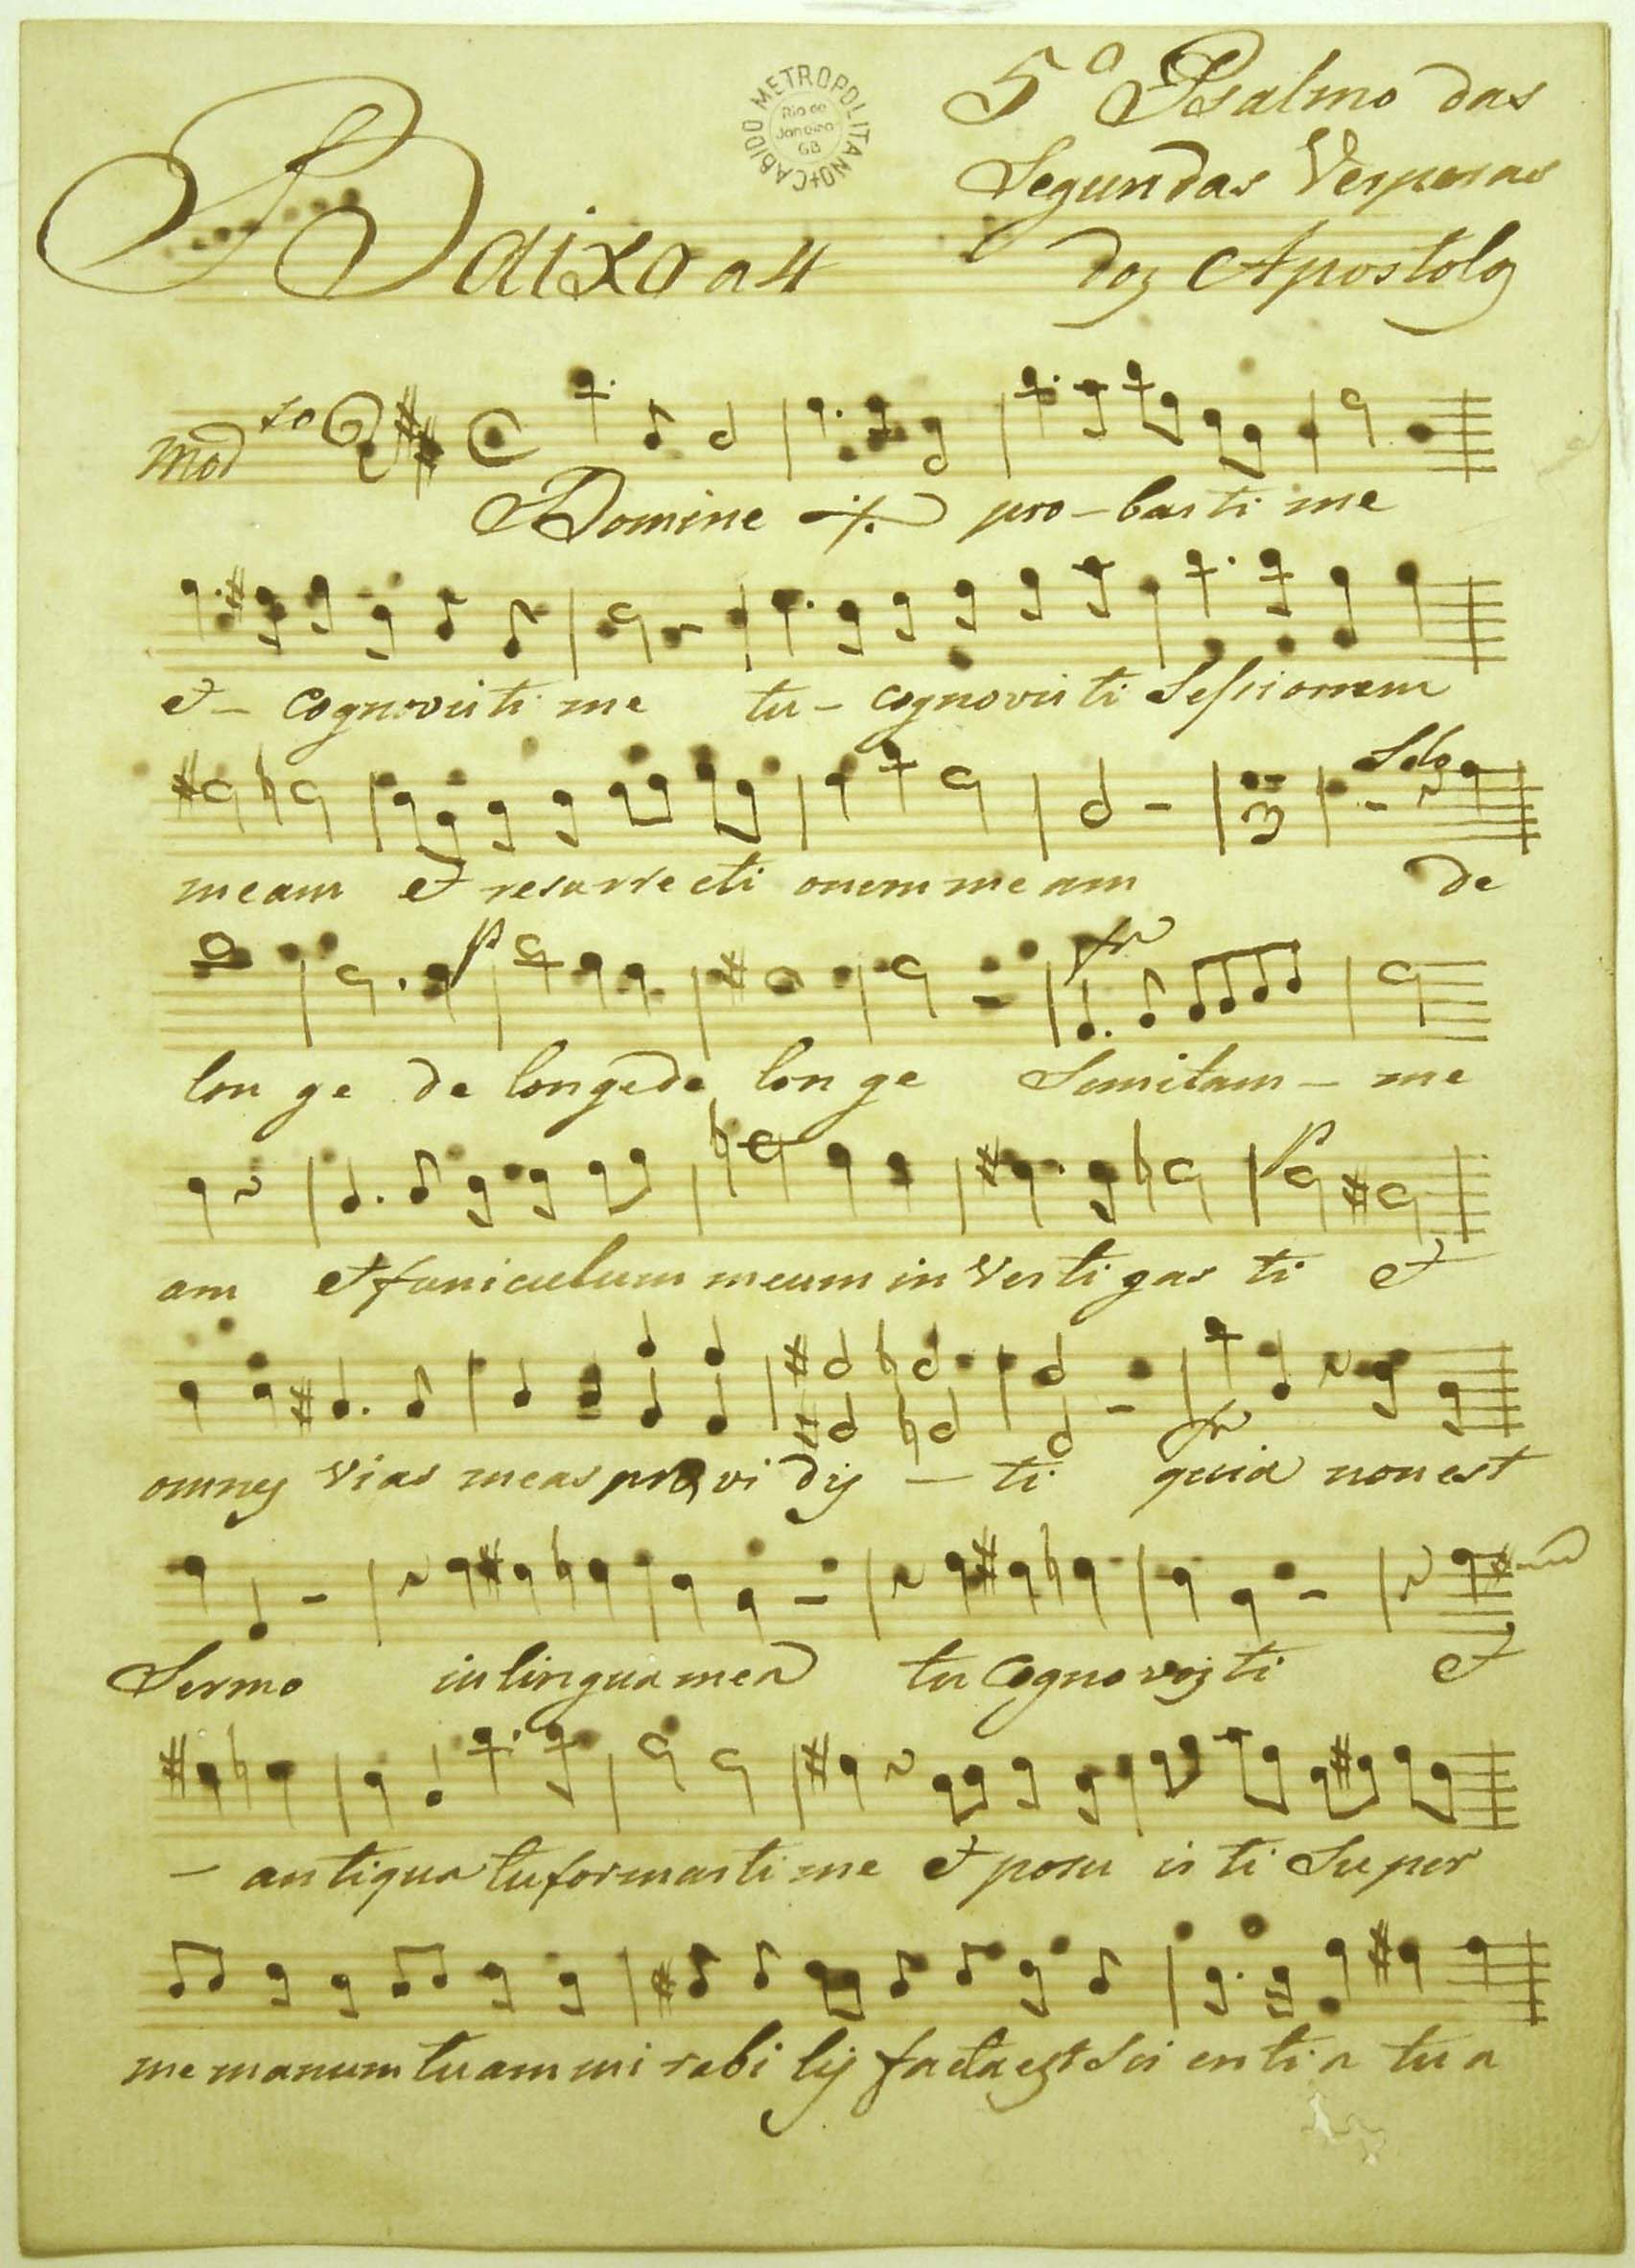 CABIDO METROPOLITANO
Rio de
Janeiro
GB
5º Psalmo das
Segundas Vesperas
doz Apostolos
Baixo a 4
Modto
Domine ·/. pro-basti me
et - cognovisti me tu - cognovisti Sessionem
Solo
meam et resurrecti onem me am de
p fr
lon ge de longe de lon ge Semitam - me
p
am et funiculum meum in vestigas ti et
omnes vias meas pre vi dis - ti quia non est
fr
Sermo in lingua mea tu Cognovisti et
- antiqua tu formasti me et posu is ti Super
me manum tuam mi rabi lis facta est Sci en ti a tu a